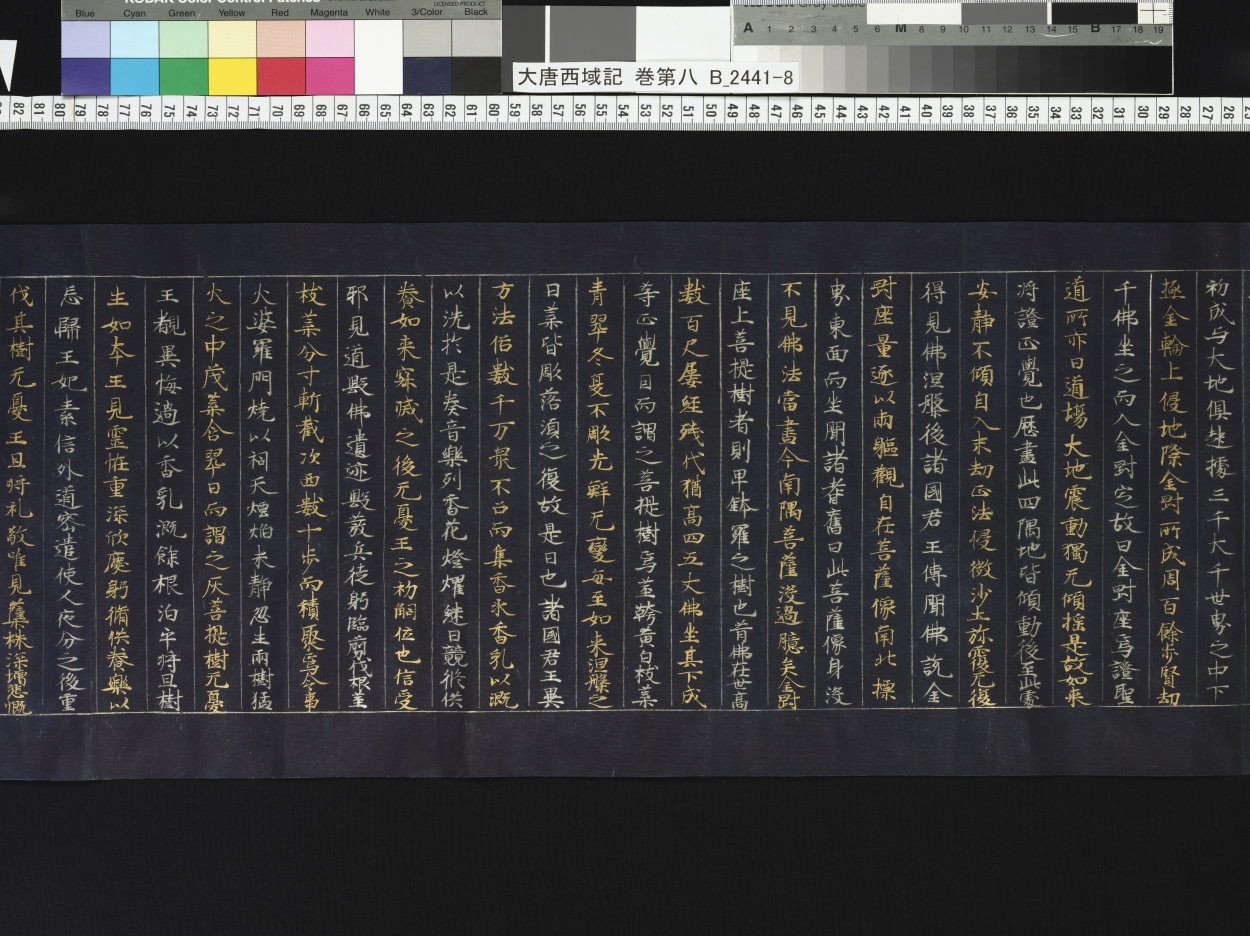 KODAK Color Control Patches
LICENSED PRODUCT
Blue Cyan Green Yellow Red Magenta White 3/Color Black
A 1 2 3 4 5 6 M 8 9 10 11 12 13 14 15 B 17 18 19
大唐西域記 巻第八 B_2441-8
82 81 80 79 78 77 76 75 74 73 72 71 70 69 68 67 66 65 64 63 62 61 60 59 58 57 56 55 54 53 52 51 50 49 48 47 46 45 44 43 42 41 40 39 38 37 36 35 34 33 32 31 30 29 28 27 26
初成与大地俱起據三千大千世界之中下
極金輪上侵地際金剛所成周百餘步賢劫
千佛坐之而入金剛定故曰金剛座焉證聖
道所亦曰道場大地震動獨无傾摇是故如来
将證正覺也歷此四隅地皆傾動後至此處
安静不傾自入末劫正法侵微沙土弥覆无復
得見佛涅槃後諸國君王傳聞佛說金
剛座量遂以兩軀觀自在菩薩像南北摽
界東面而坐聞諸耆舊曰此菩薩像身没
不見佛法當盡今南隅菩薩没過臆矣金剛
座上菩提樹者則畢鉢羅之樹也昔佛在世高
數百尺屢經残伐猶高四五丈佛坐其下成
等正覺因而謂之菩提樹焉莖幹黄白枝葉
青翠冬夏不彫光鮮无變每至如来涅槃之
日葉皆彫落須之復故是日也諸國君王異
方法俗數千万衆不召而集香水香乳以溉
以洗於是奏音樂列香花燈燿継日競修供
養如来寂滅之後无憂王之初嗣位也信受
邪見道毀佛遺迹興發兵徒躬臨剪伐根莖
枝葉分寸斬截次西數十步而積聚焉令事
火婆羅門焼以祠天煙焰未静忽生兩樹猛
火之中茂葉含翠因而謂之灰菩提樹无憂
王覩異悔過以香乳溉餘根泊乎将旦樹
生如本王見靈怪重深欣慶躬修供養樂以
忘歸王妃素信外道密遣使人夜分之後重
伐其樹无憂王旦将礼敬唯見蘖株深增悲慨